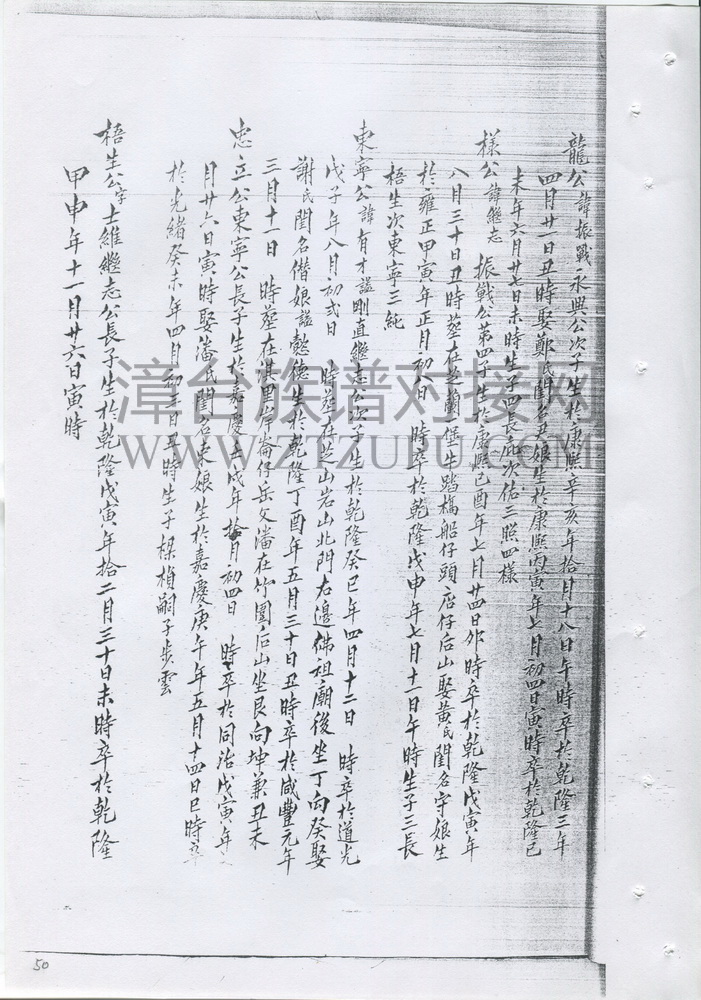 龍公諱振戰永興公次子生於康熙辛亥年拾月十八日午時卒於乾隆三年
四月廿一日丑時娶鄭氏閨名尹娘生於康熙丙寅年七月初四日寅時卒於乾隆己
未年六月廿七日未時生子四長庇次佑三照四樣
樣公諱繼志 振戰公第四子生於康熙己酉年七月廿四日卯時卒於乾隆戊寅年
八月三十日丑時葬在芝蘭堡牛踏橋船仔頭店仔后山娶黃氏閨名守娘生
於雍正甲寅年正月初八日 時卒於乾隆戊申年七月十一日午時生子三長
梧生次東寧三純
東寧公諱有才諡剛直繼志公次子生於乾隆癸巳年四月十二日 時卒於道光
戊子年八月初弍日 時葬在芝山岩山北門右邊佛祖廟後坐丁向癸娶
謝氏閨名僭娘諡懿德生於乾隆丁酉年五月三十日丑時卒於咸豐元年
三月十一日 時葬在淇里岸崙仔岳父潘在竹圍后山坐艮向坤兼丑未
忠立公東寧公長子生於嘉慶壬戌年拾月初四日 時卒於同治戊寅年
月廿六日寅時娶潘氏閨名束娘生於嘉慶庚午年五月十四日巳時卒
於光緒癸未年四月初三日丑時生子樑楨嗣子步雲
梧生公字士維繼志公長子生於乾隆戊寅年拾二月三十日未時卒於乾隆
甲申年十一月廿六日寅時
漳台族谱对接网
WWW.ZTZUPU.COM
50